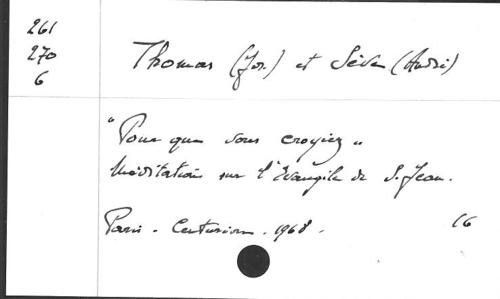 261
270
6
Thomas (Jos.) et Sève (André)
"Pour que vous croyiez"
Méditations sur l'Evangile de S. Jean.
Paris - Centurion - 1968 - 16